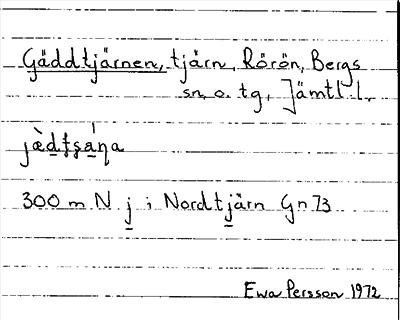 Gäddtjärnen, tjärn, Rörön, Bergs
sn, o. tg, Jämtl l.
300 m N j i Nordtjärn Gn 73
Ewa Persson 1972